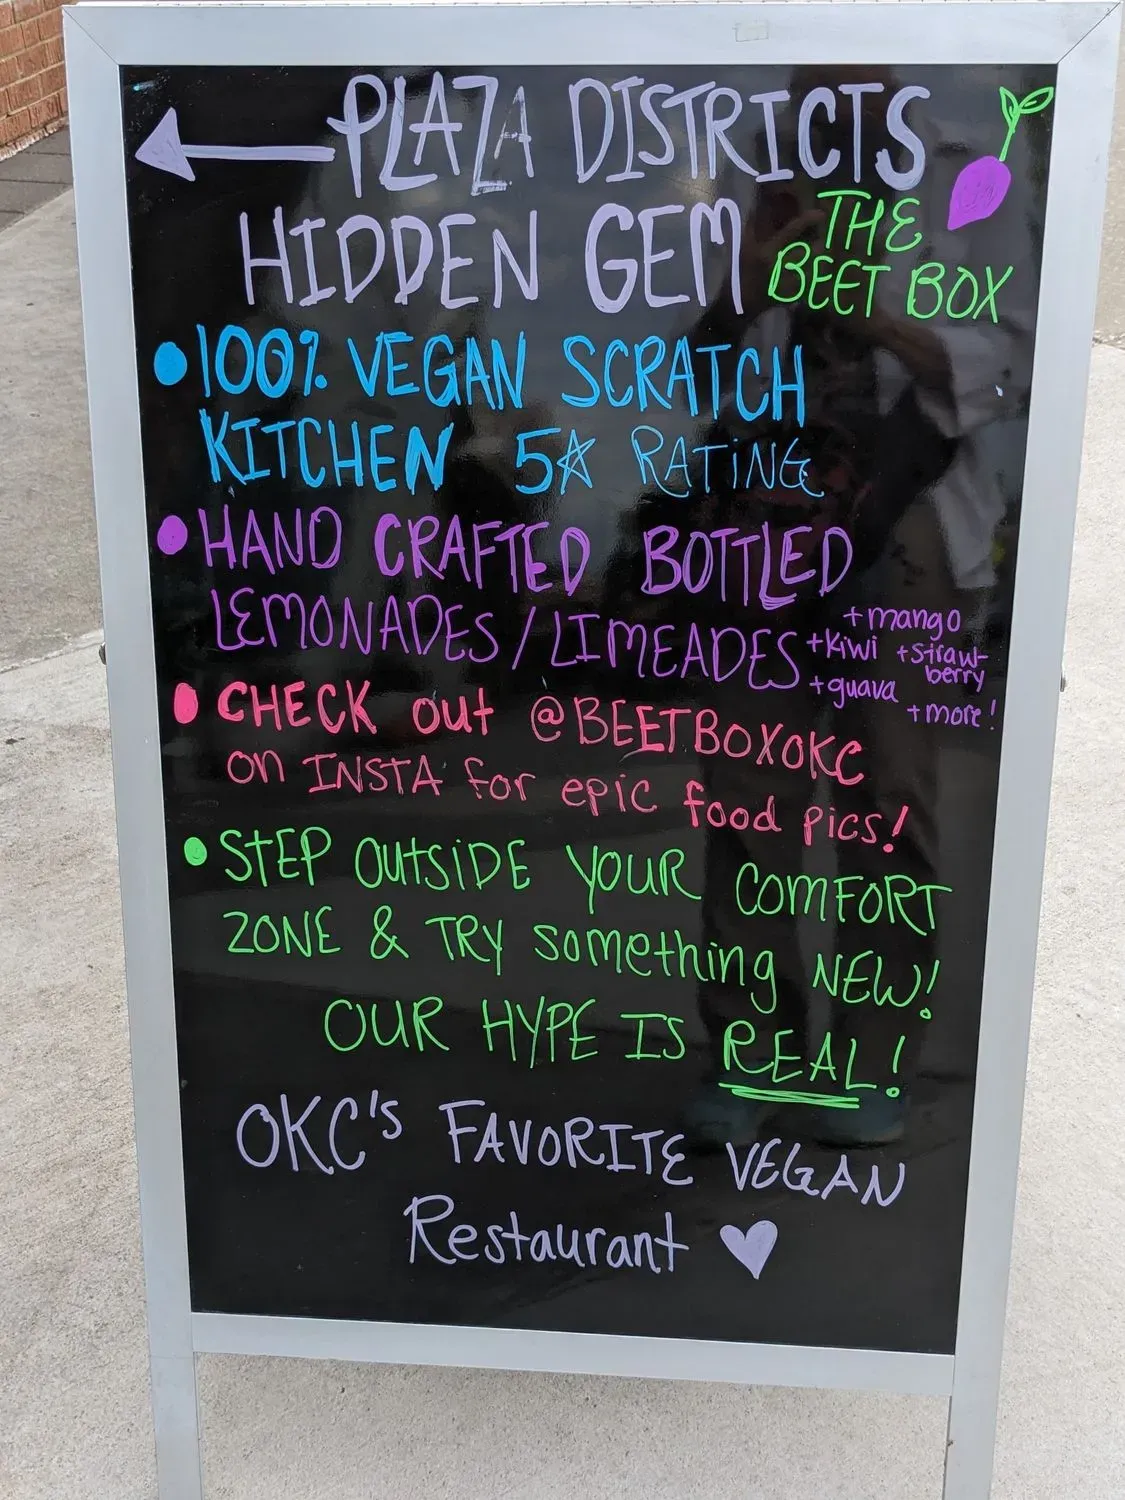 PLAZA DISTRICTS
HIDDEN GEM
THE
BEET BOX
100% VEGAN SCRATCH
KITCHEN 5☆ RATING
HAND CRAFTED BOTTLED
LEMONADES/LIMEADES
+mango
+kiwi +straw-
berry
+guava
+more!
CHECK out @BEETBOXOKC
on INSTA for epic food pics!
STEP OUTSIDE YOUR COMFORT
ZONE & TRY something NEW!
OUR HYPE IS REAL!
OKC's FAVORITE VEGAN
Restaurant